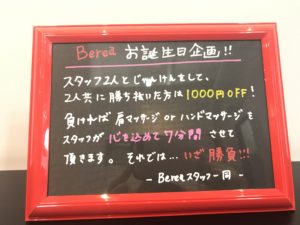 Berea お誕生日企画!!
スタッフ2人とじゃんけんをして、
2人共に勝ち抜いた方は1000円OFF!
負ければ肩マッサージorハンドマッサージを
スタッフが心を込めて7分間 させて
頂きます。それでは…いざ勝負!!!
- Bereaスタッフ一同 -